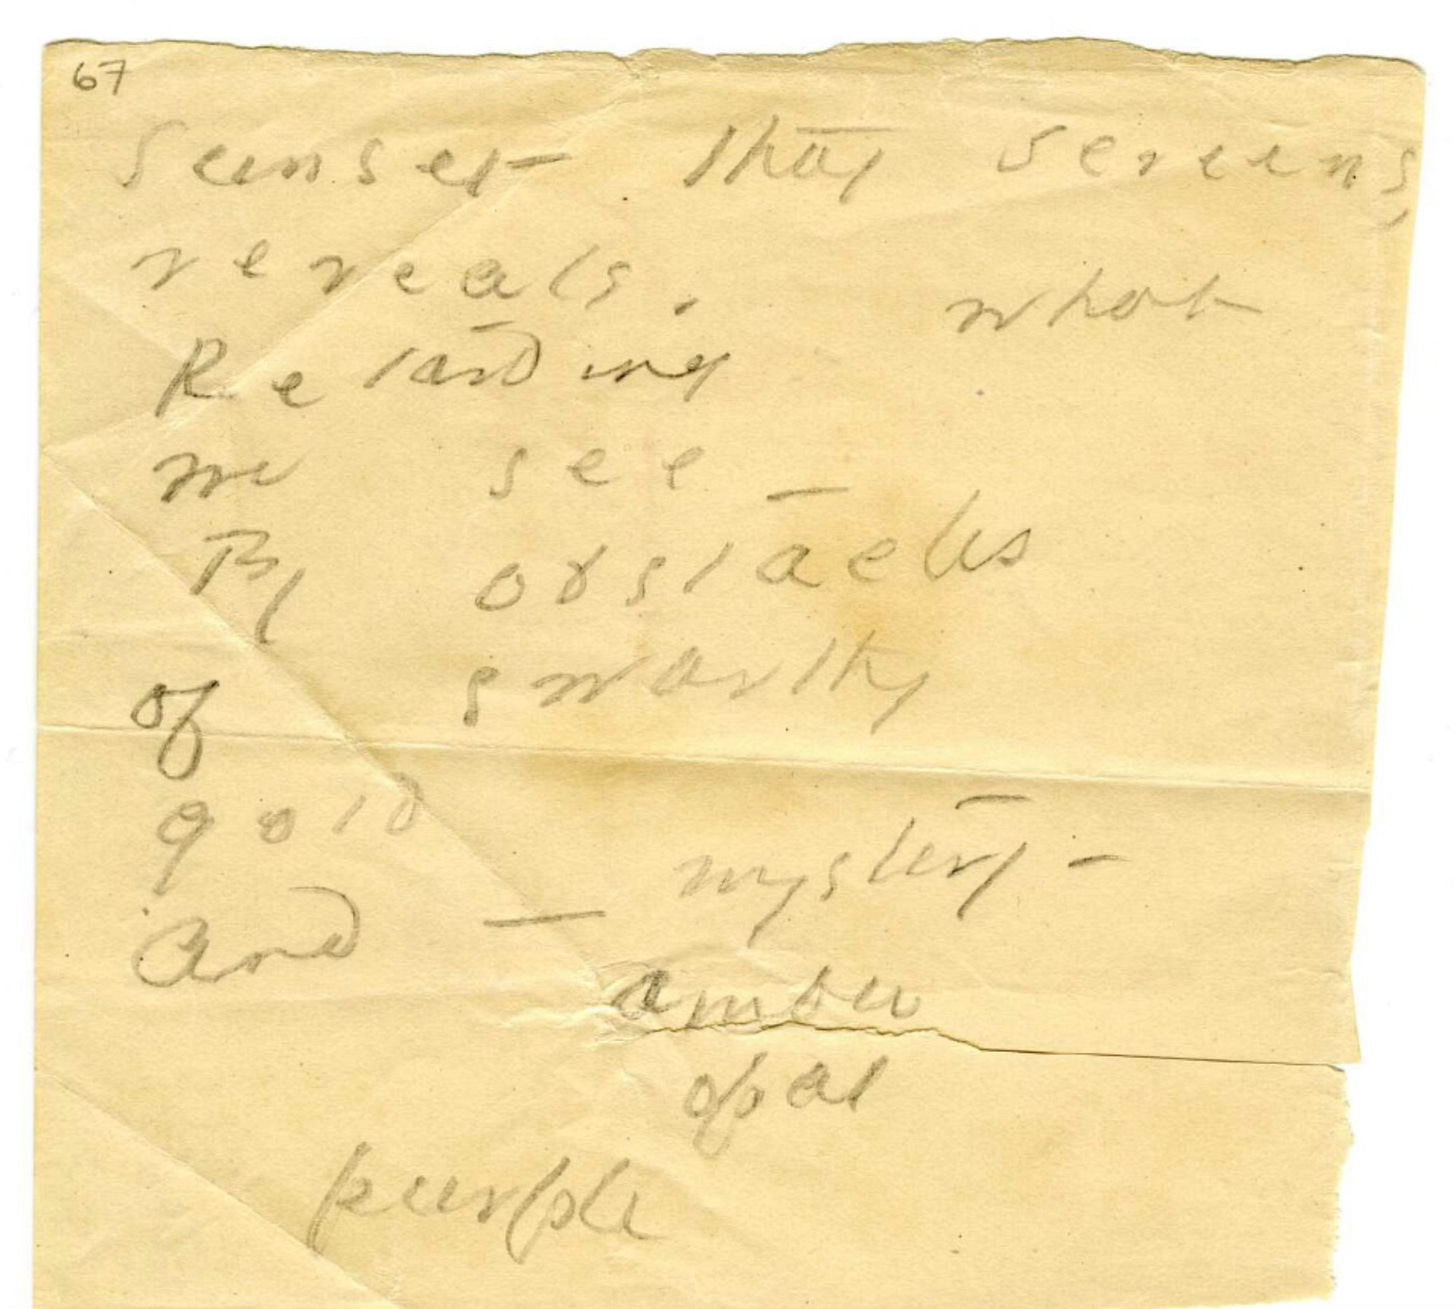 67
Sunset that screens,
reveals.
Retarding what
we see
By obstacles
of swarthy
gold
And — mystery -
amber
opal
purple